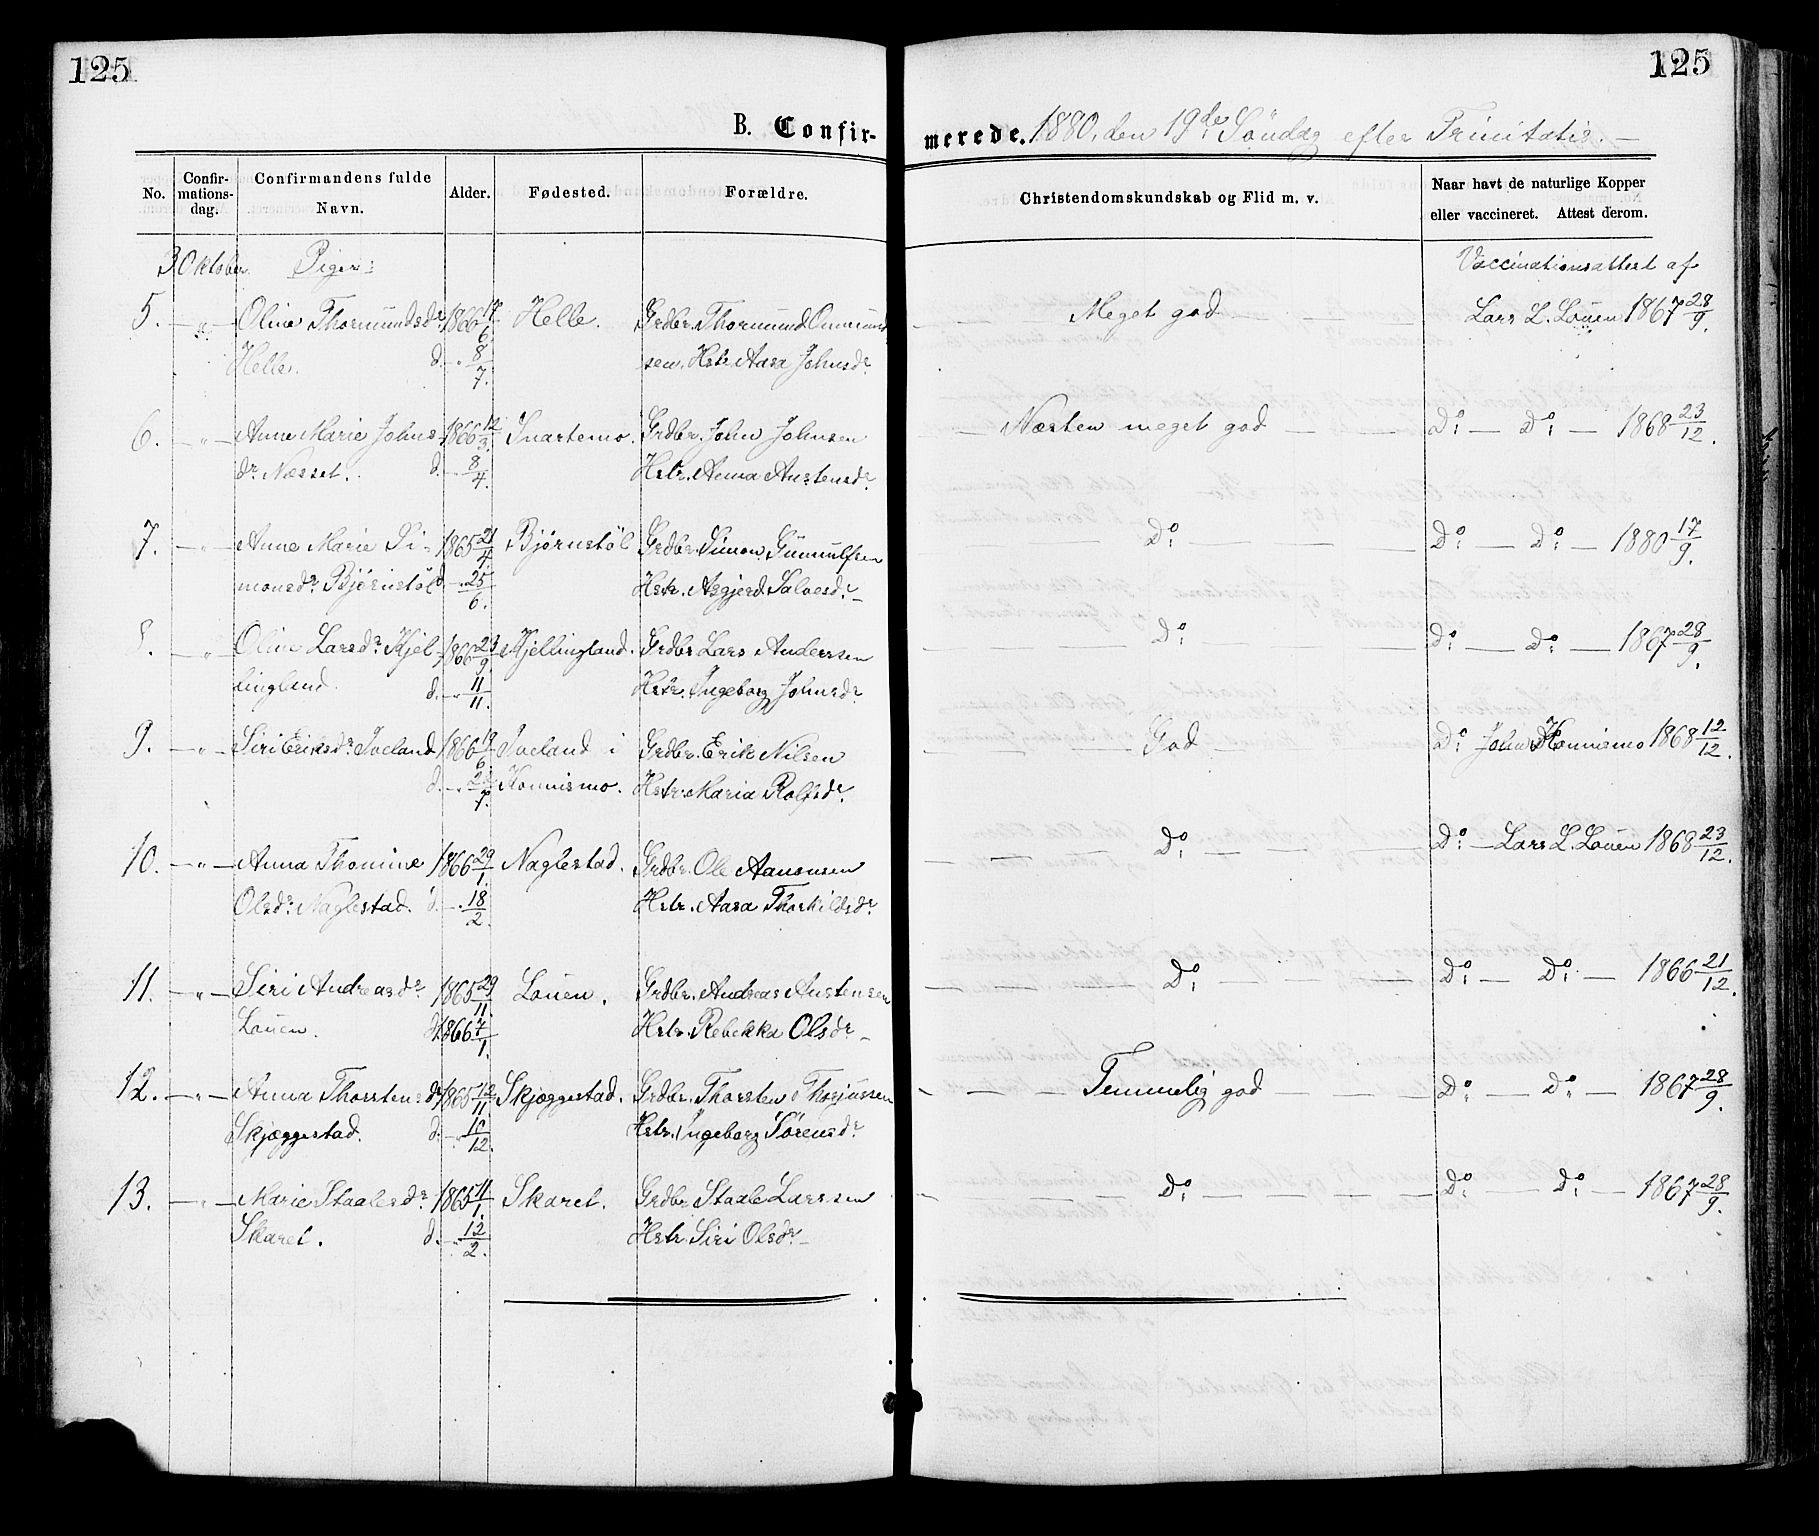 125
125
B. Confir-
merede. 1880, den 19de Søndag efter Trinitatis.
No.
Confir-
mations-
dag.
Confirmandens fulde
Navn.
Alder.
Fødested.
Forældre.
Christendomskundskab og Flid m. v.
Naar havt de naturlige Kopper
eller vaccineret. Attest derom.
3 Oktober. Piger: Vaccinationsattest af
5. — „ — Oline Thormundsdr 1866 17/6 Helle. Grdbr. Thormund Ommund — — Meget god — — Lars L. Louen 1867 28/9.
Helle. d. — „ 8/7. sen. Hstr. Aasa Johnsdr
6. — „ — Anne Marie Johns- 1866 12/3. Snartemo. Grdbr. John Johnsen — Næsten meget god — — Do — Do — 1868 23/12.
dr Næsset. d. — 8/4. Hstr. Anna Austensdr
7. — „ — Anne Marie Si- 1865 21/4. Bjørnstøl Grdbr. Simon Gunnulfsen — — Do — — Do — Do — 1880 17/9.
monsdr Bjørnstøl d. — „ 25/6. Hstr. Asgjerd Salvesdr —
8. „ — Oline Larsdr Kjel- 1866 23/9 Kjellingland. Grdbr Lars Anderssen — Do — Do — Do — 1867 28/9.
lingland. d. — „ 11/11. Hstr. Ingeborg Johnsdr
9. — „ — Siri Eriksdr Iveland 1866 19/6 Iveland i Grdbr. Erik Nilsen — God — Do John Konnismo 1868 12/12.
d. — „ /7. Konnismo. Hstr. Maria Rolfsdr.
10. — „ — Anna Thomine 1866 29/1. Naglestad. Grdbr. Ole Aanonsen — — — Do — — Do — Lars L. Louen 1868 23/12.
Olsdr Naglestad. d. — „ 18/2. Hstr. Aasa Thorkildsdr
11. — „ — Siri Andreasdr 1865 29/11. Louen. Grdbr. Andreas Austensen — Do — Do — Do — 1866 21/12.
Louen. d. 1866 7/1. Hstr. Rebekka Olsdr —
12. — „ — Anna Thorstensdr 1865 12/11 Skjæggestad. Grdbr. Thorsten Thorjussen — — — Temmelig god — — Do — Do — 1867 28/9.
Skjæggestad. d. — „ 10/12. Hstr. Ingeborg Sørensdr
13. — „ — Marie Staalesdr 1865 11/1. Skaret. Grdbr Staale Larssen — — — Do — — Do — Do — 1867 28/9.
Skaret. d. — „ 12/2. Hstr Siri Olsdr —